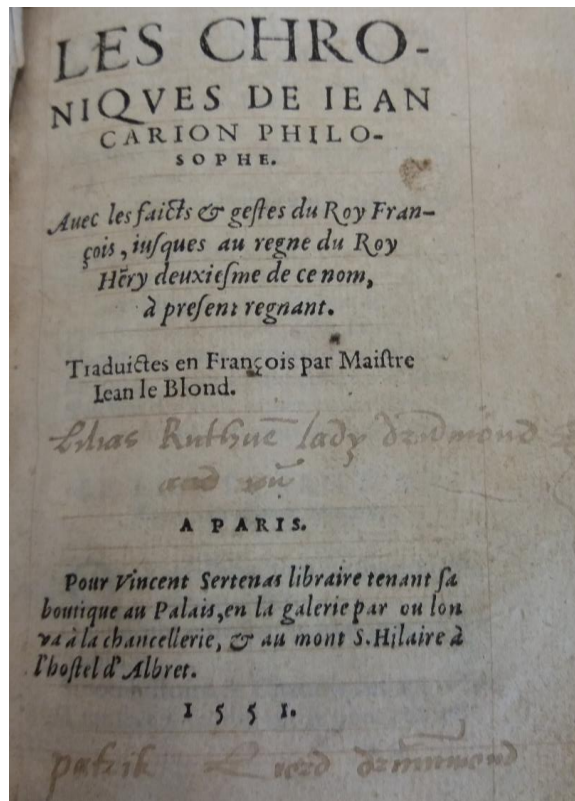 LES CHRO-
NIQVES DE IEAN
CARION PHILO-
SOPHE.
Auec les faicts & gestes du Roy Fran-
çois, iusques au regne du Roy
Hẽry deuxiesme de ce nom,
à present regnant.
Traduictes en François par Maistre
Iean le Blond.
Lilias Ruthuē lady drūdmōnd
and
A PARIS.
Pour Vincent Sertenas libraire tenant sa
boutique au Palais, en la galerie par ou lon
va à la chancellerie, & au mont S. Hilaire à
l'hostel d'Albret.
1551.
patrik lord